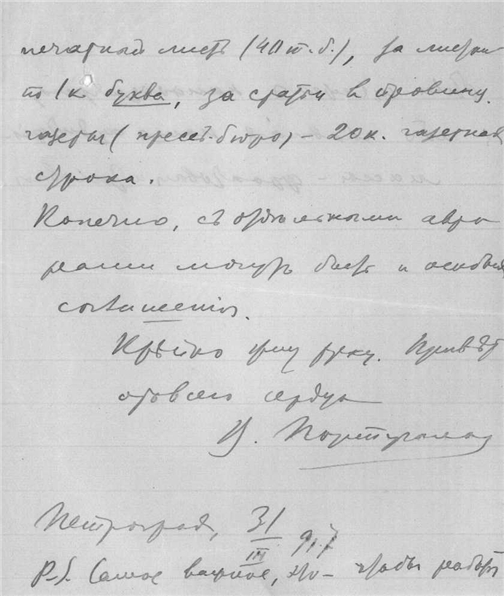 печатный листъ (40 т.б.), за
1 к. буква, за статьи в провинц.
газеты (пресс-бюро) – 20 к. газетная
строка.
Конечно, съ отдѣльными авто-
рами могутъ быть и особыя
соглашенія.
Крѣпко жму руку. Привѣт
отъ всего сердца
Петроград, 31/III 917
P.S. Самое важное, это – чтобы работа